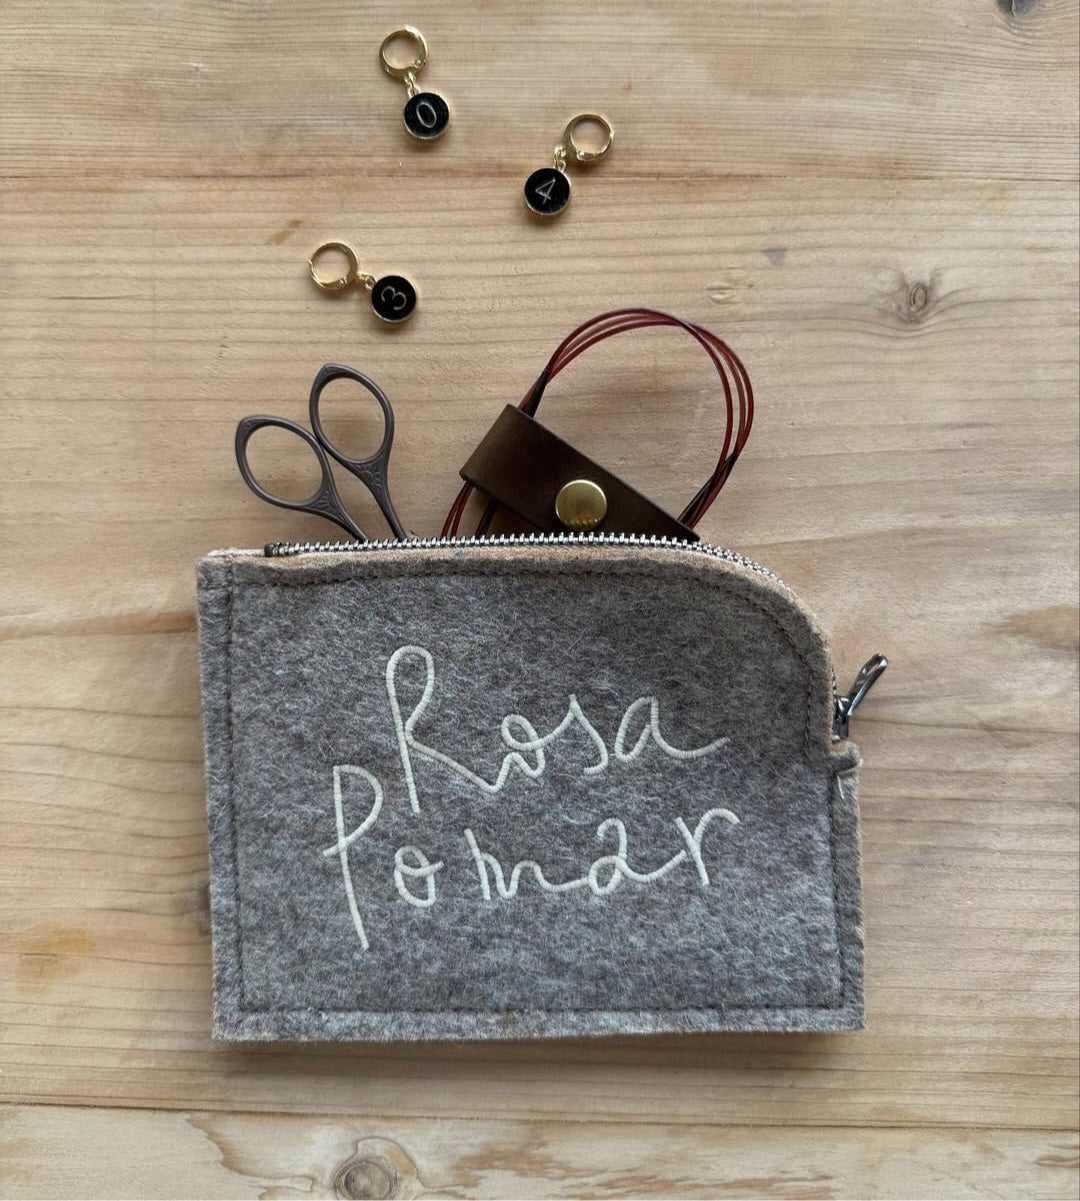 0
4
3
Rosa
Pomar